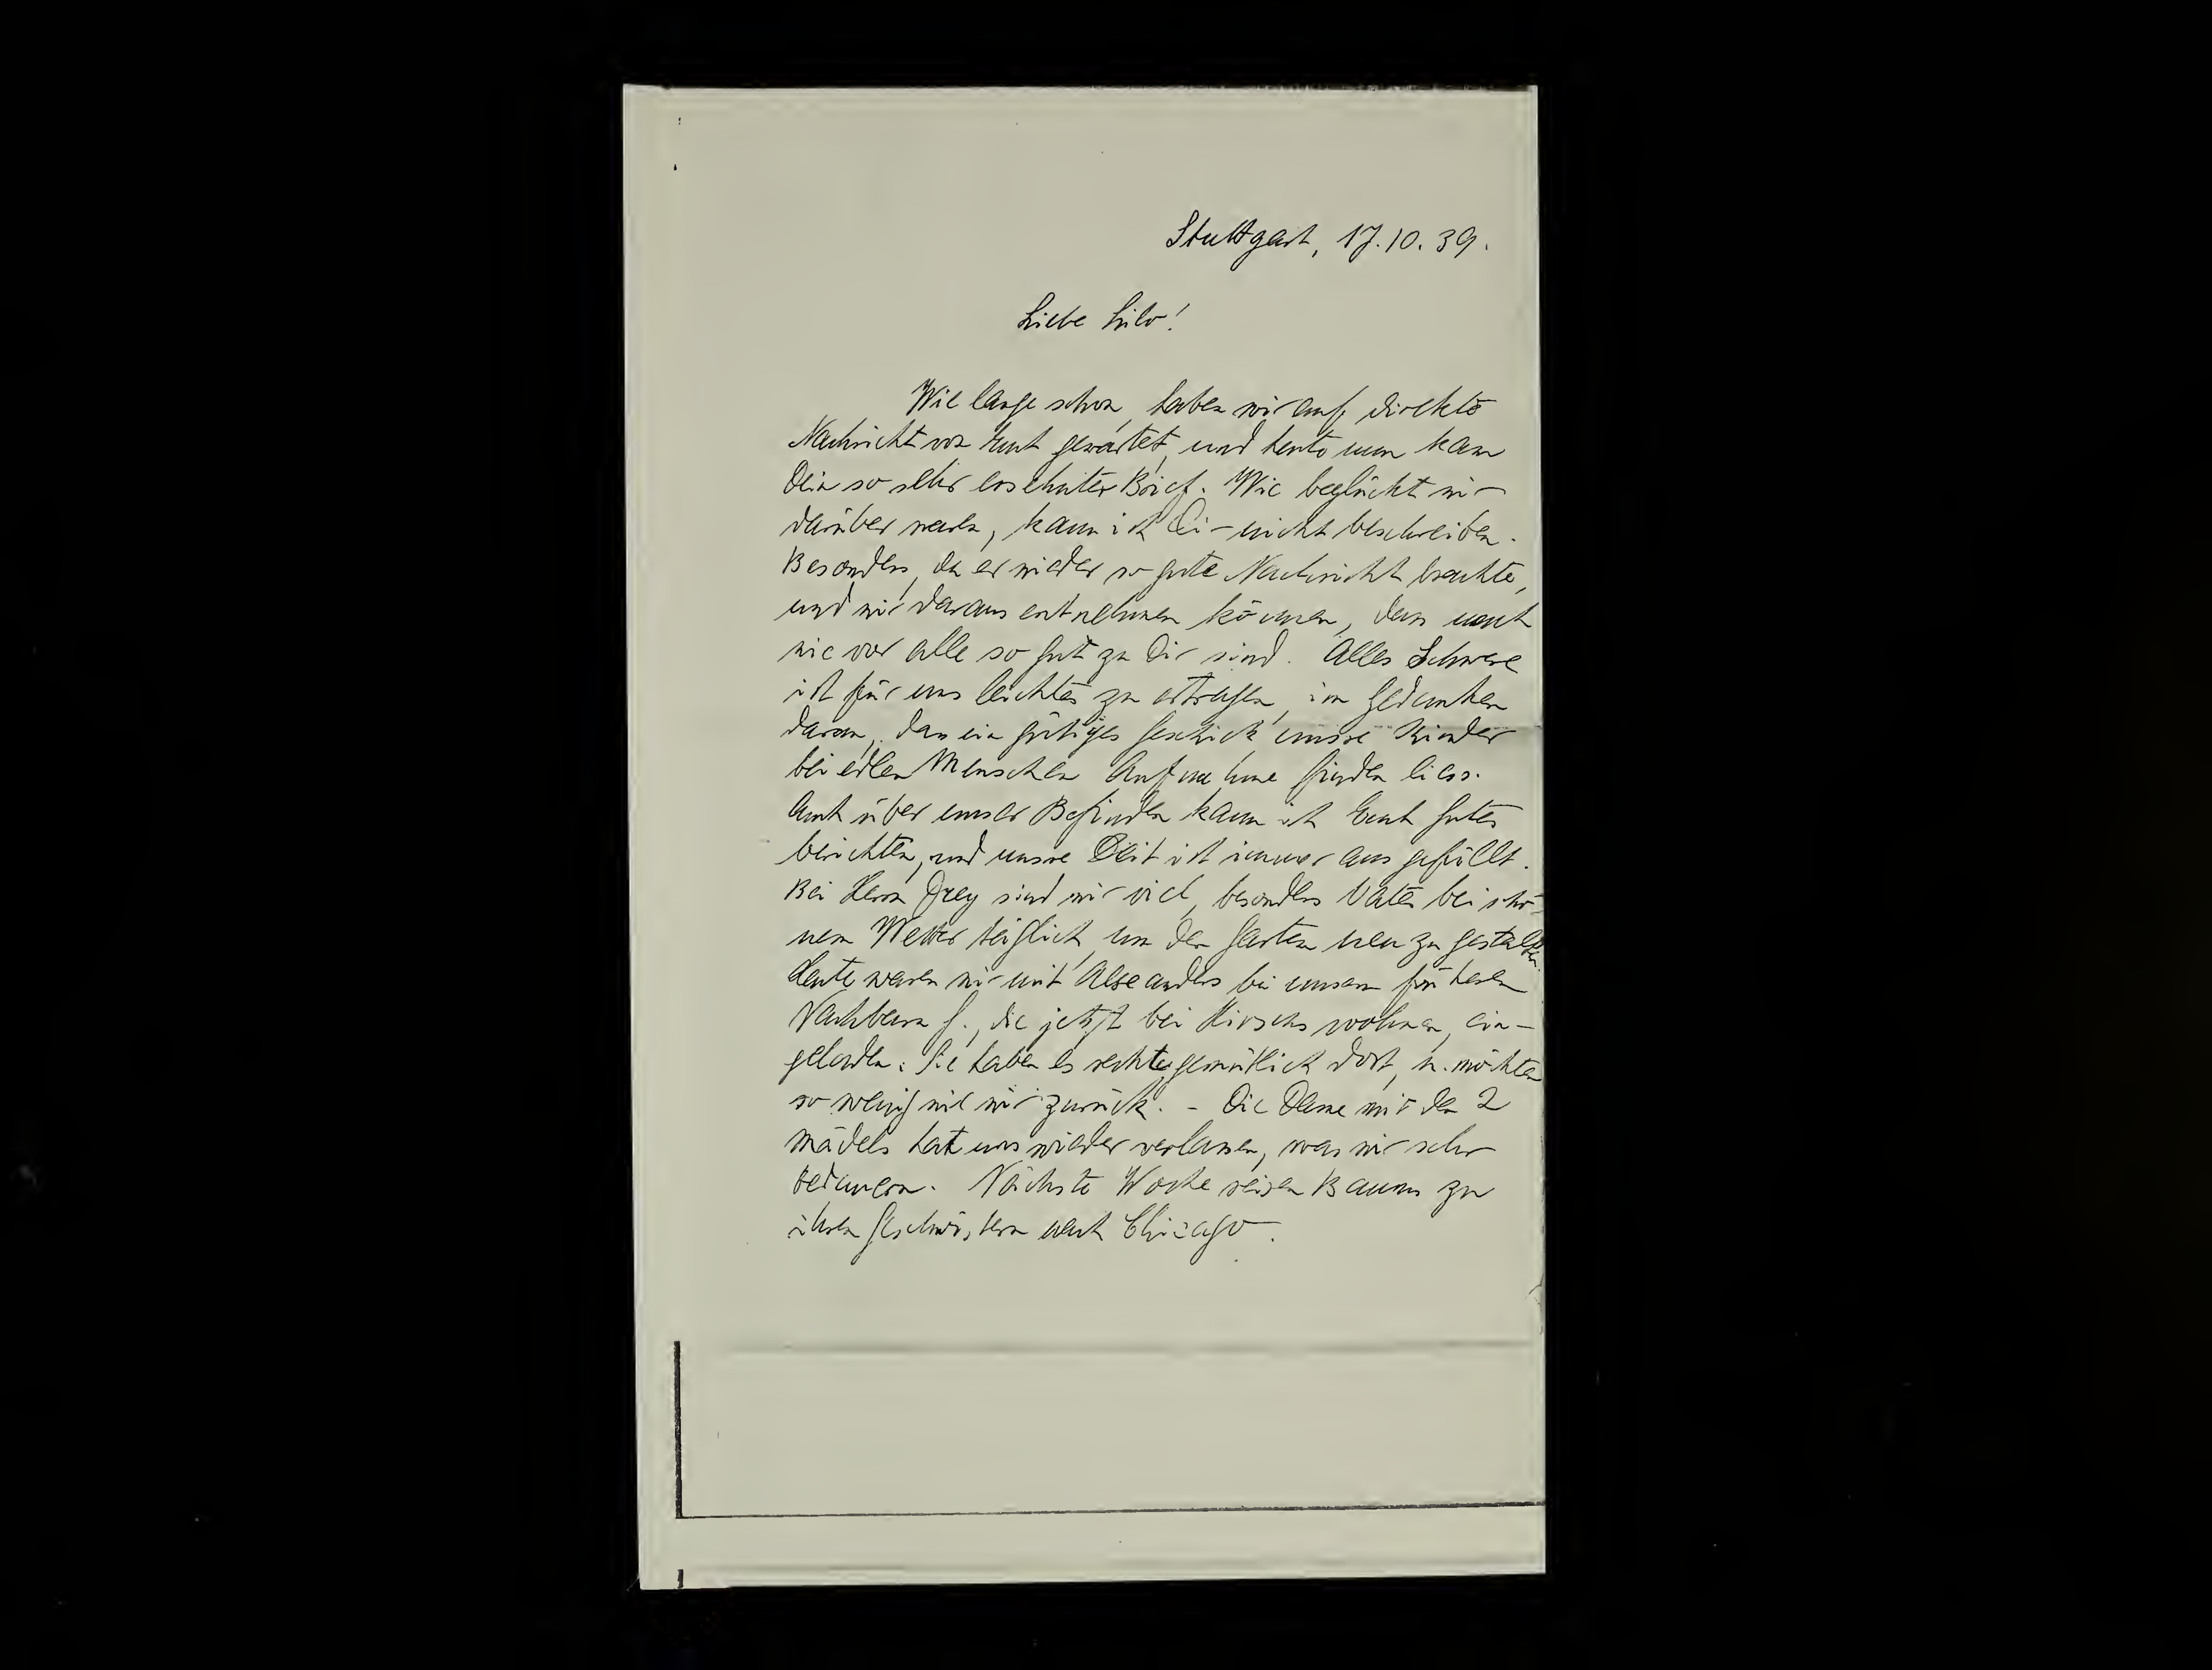 Stuttgart, 17.10.39.
Liebe Lilo!
Wie lange schon, haben wir auf direkte
Nachricht von Euch gewartet, und heute nun kam
Dein so sehr ersehnter Brief. Wie beglückt wir
darüber waren, kann ich Dir nicht beschreiben.
Besonders, da er wieder so gute Nachricht brachte,
und wir daraus entnehmen können, dass nach
wie vor alle so gut zu Dir sind. Alles Schwere
ist für uns leichter zu ertragen, im Gedanken
daran, dass ein gütiges Geschick unsre Kinder
bei edlen Menschen Aufnahme finden liess.
Auch über unser Befinden kann ich Euch Gutes
berichten, und unsre Zeit ist immer ausgefüllt.
Bei Herrn Frey sind wir viel, besonders Vater bei schö-
nem Wetter täglich, um den Garten neu zu gestalten.
Heute waren wir mit Alexanders bei unsern früheren
Nachbarn G., die jetzt bei Hirschs wohnen, ein-
geladen. Sie haben es recht gemütlich dort, u. möchten
so wenig wie wir zurück. - Die Dame mit den 2
Mädels hat uns wieder verlassen, was wir sehr
bedauern. Nächste Woche reisen Baums zu
ihren Geschwistern nach Chicago.